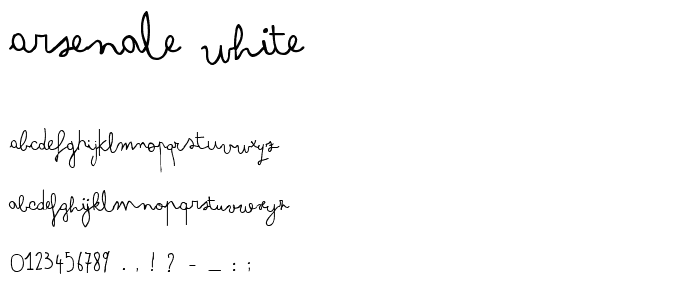 arsenale white
abcdefghijklmnopqrstuvwxyz
abcdefghijklmnopqrstuvwxyz
0123456789 . , ! ? - _ : ;